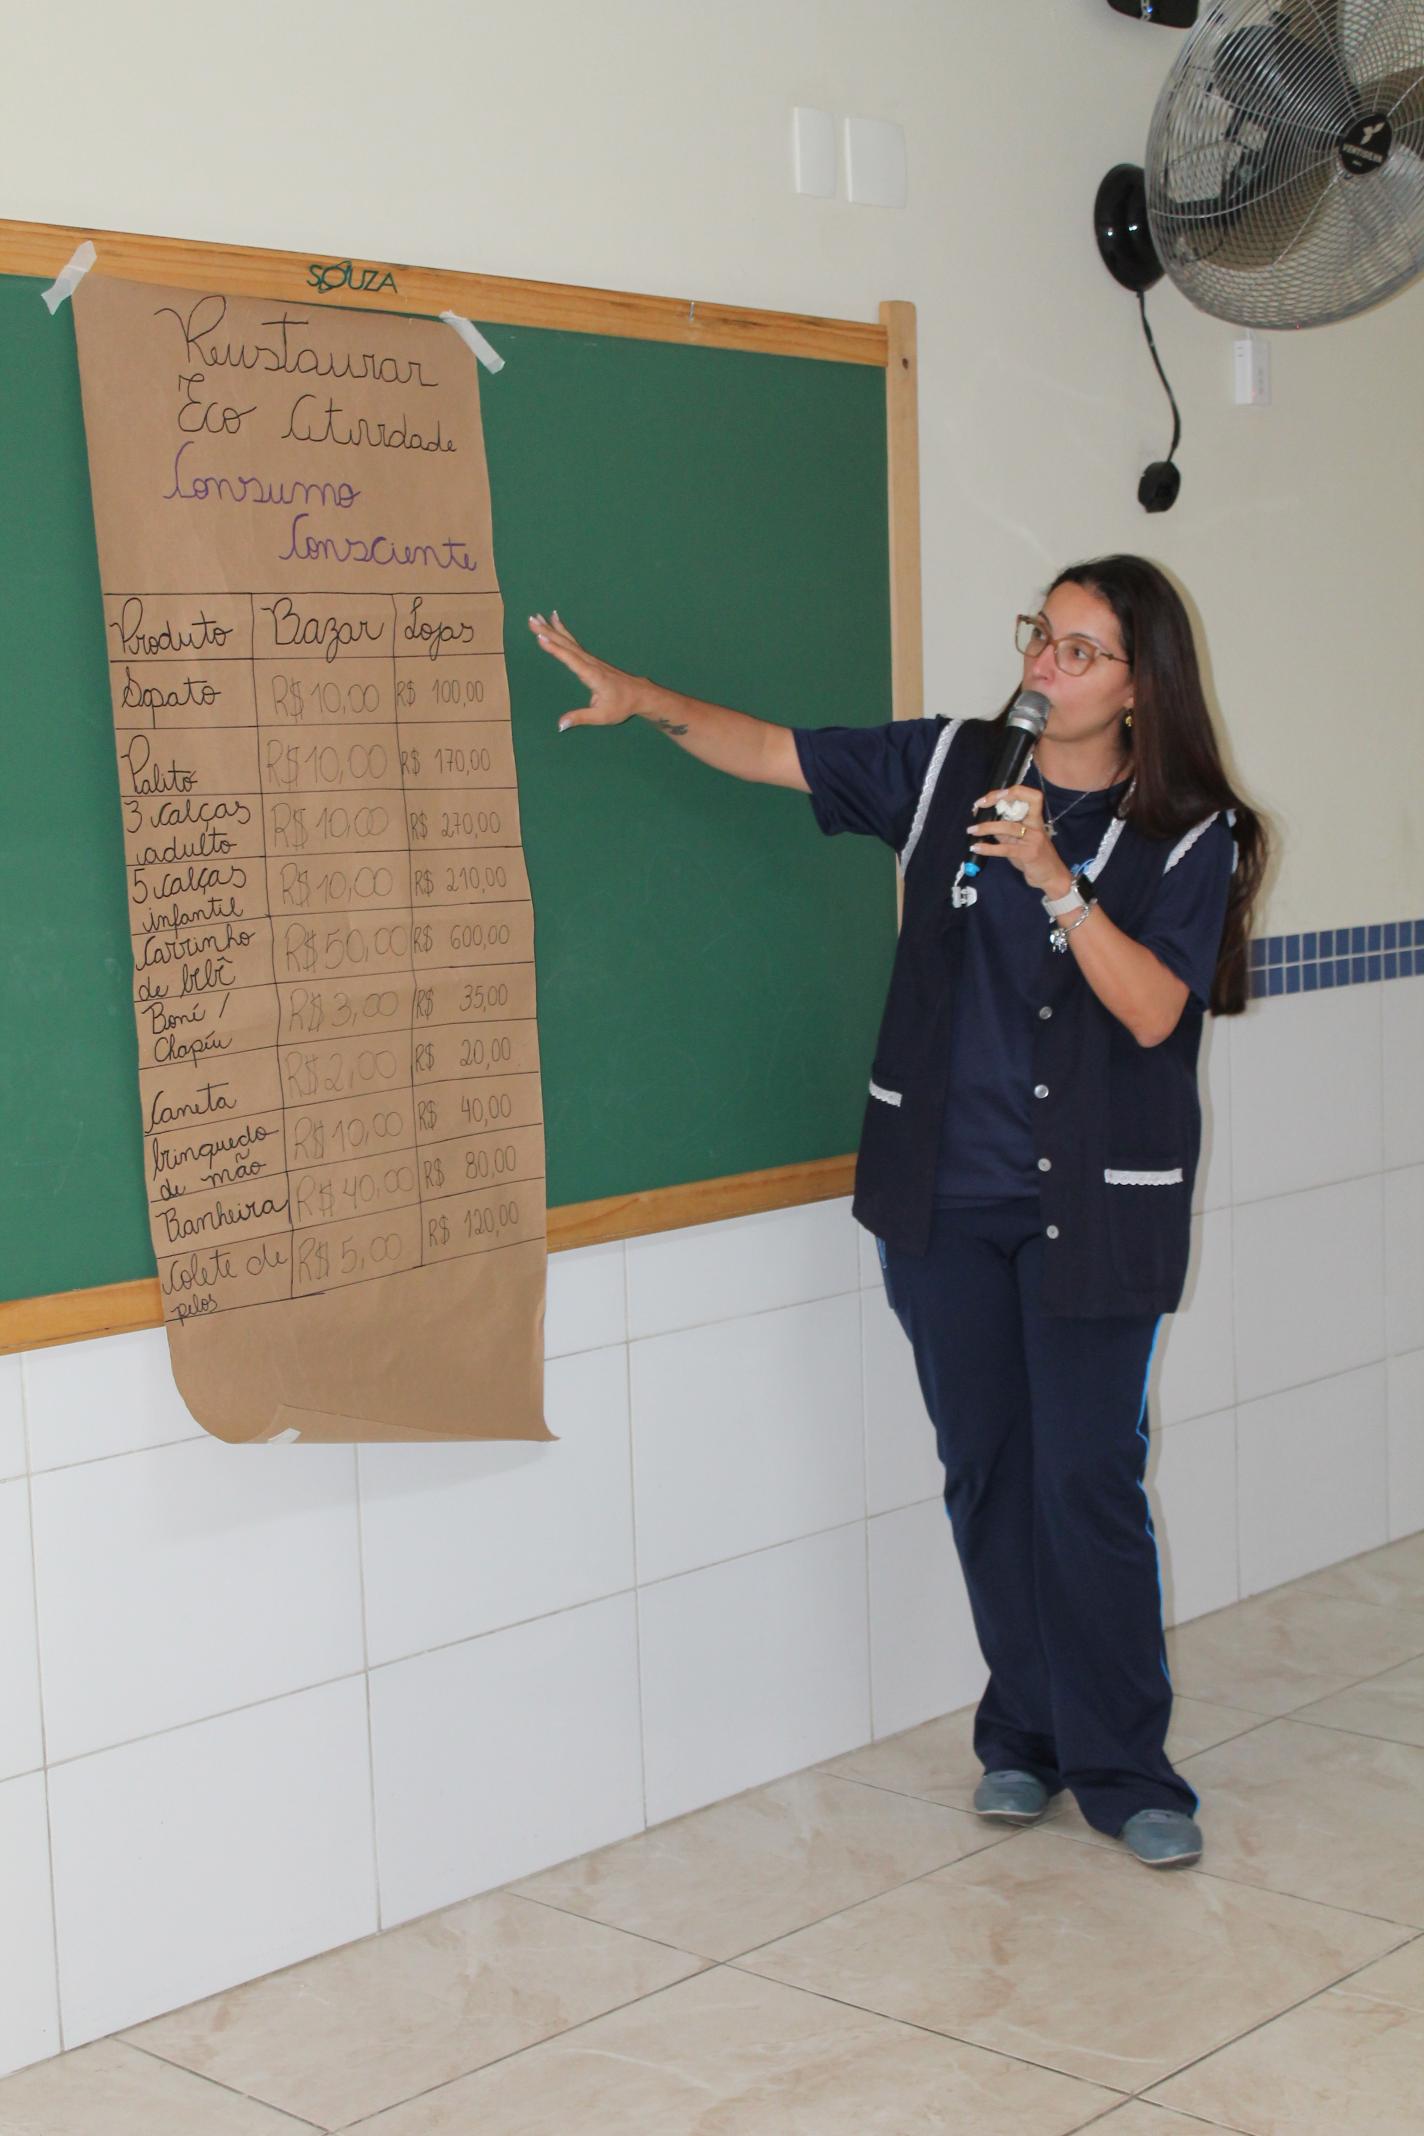 SOUZA
Reustaurar
Eco Atividade
Consumo
Consciente
Produto Bazar Lojas
Sapato R$ 10,00 R$ 100,00
Palito R$ 10,00 R$ 170,00
3 calças
adulto R$ 10,00 R$ 270,00
5 calças
infantil R$ 10,00 R$ 210,00
Carrinho
de bebê R$ 50,00 R$ 600,00
Boné /
Chapéu R$ 3,00 R$ 35,00
Caneta R$ 2,00 R$ 20,00
brinquedo
de mão R$ 10,00 R$ 40,00
Banheira R$ 40,00 R$ 80,00
Colete de
pelos R$ 5,00 R$ 120,00
VENTISILVA